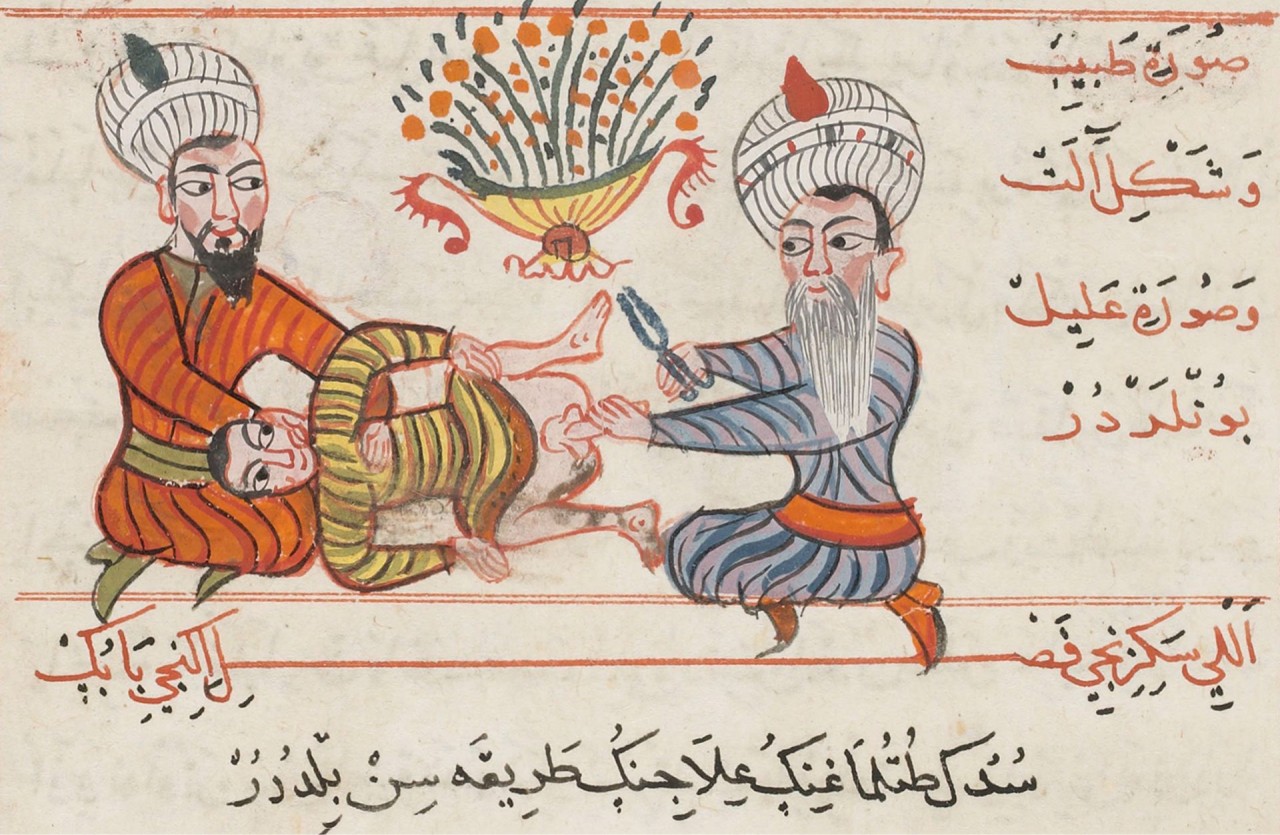 صُورَةْ طَبِيبْ
وَشَكْلِ آلَتْ
وَصُورَةْ عَلِيلْ
بُونْلَرْدُرْ
اَللِي سَكِزِنْجِي فَصْلِ اِكِنْجِي بَابُكْ
سُدُكْ طُتُلْمَاغِنُكْ عِلَاجِنُكْ طَرِيقَه سِنْ بِلْدُرُرْ